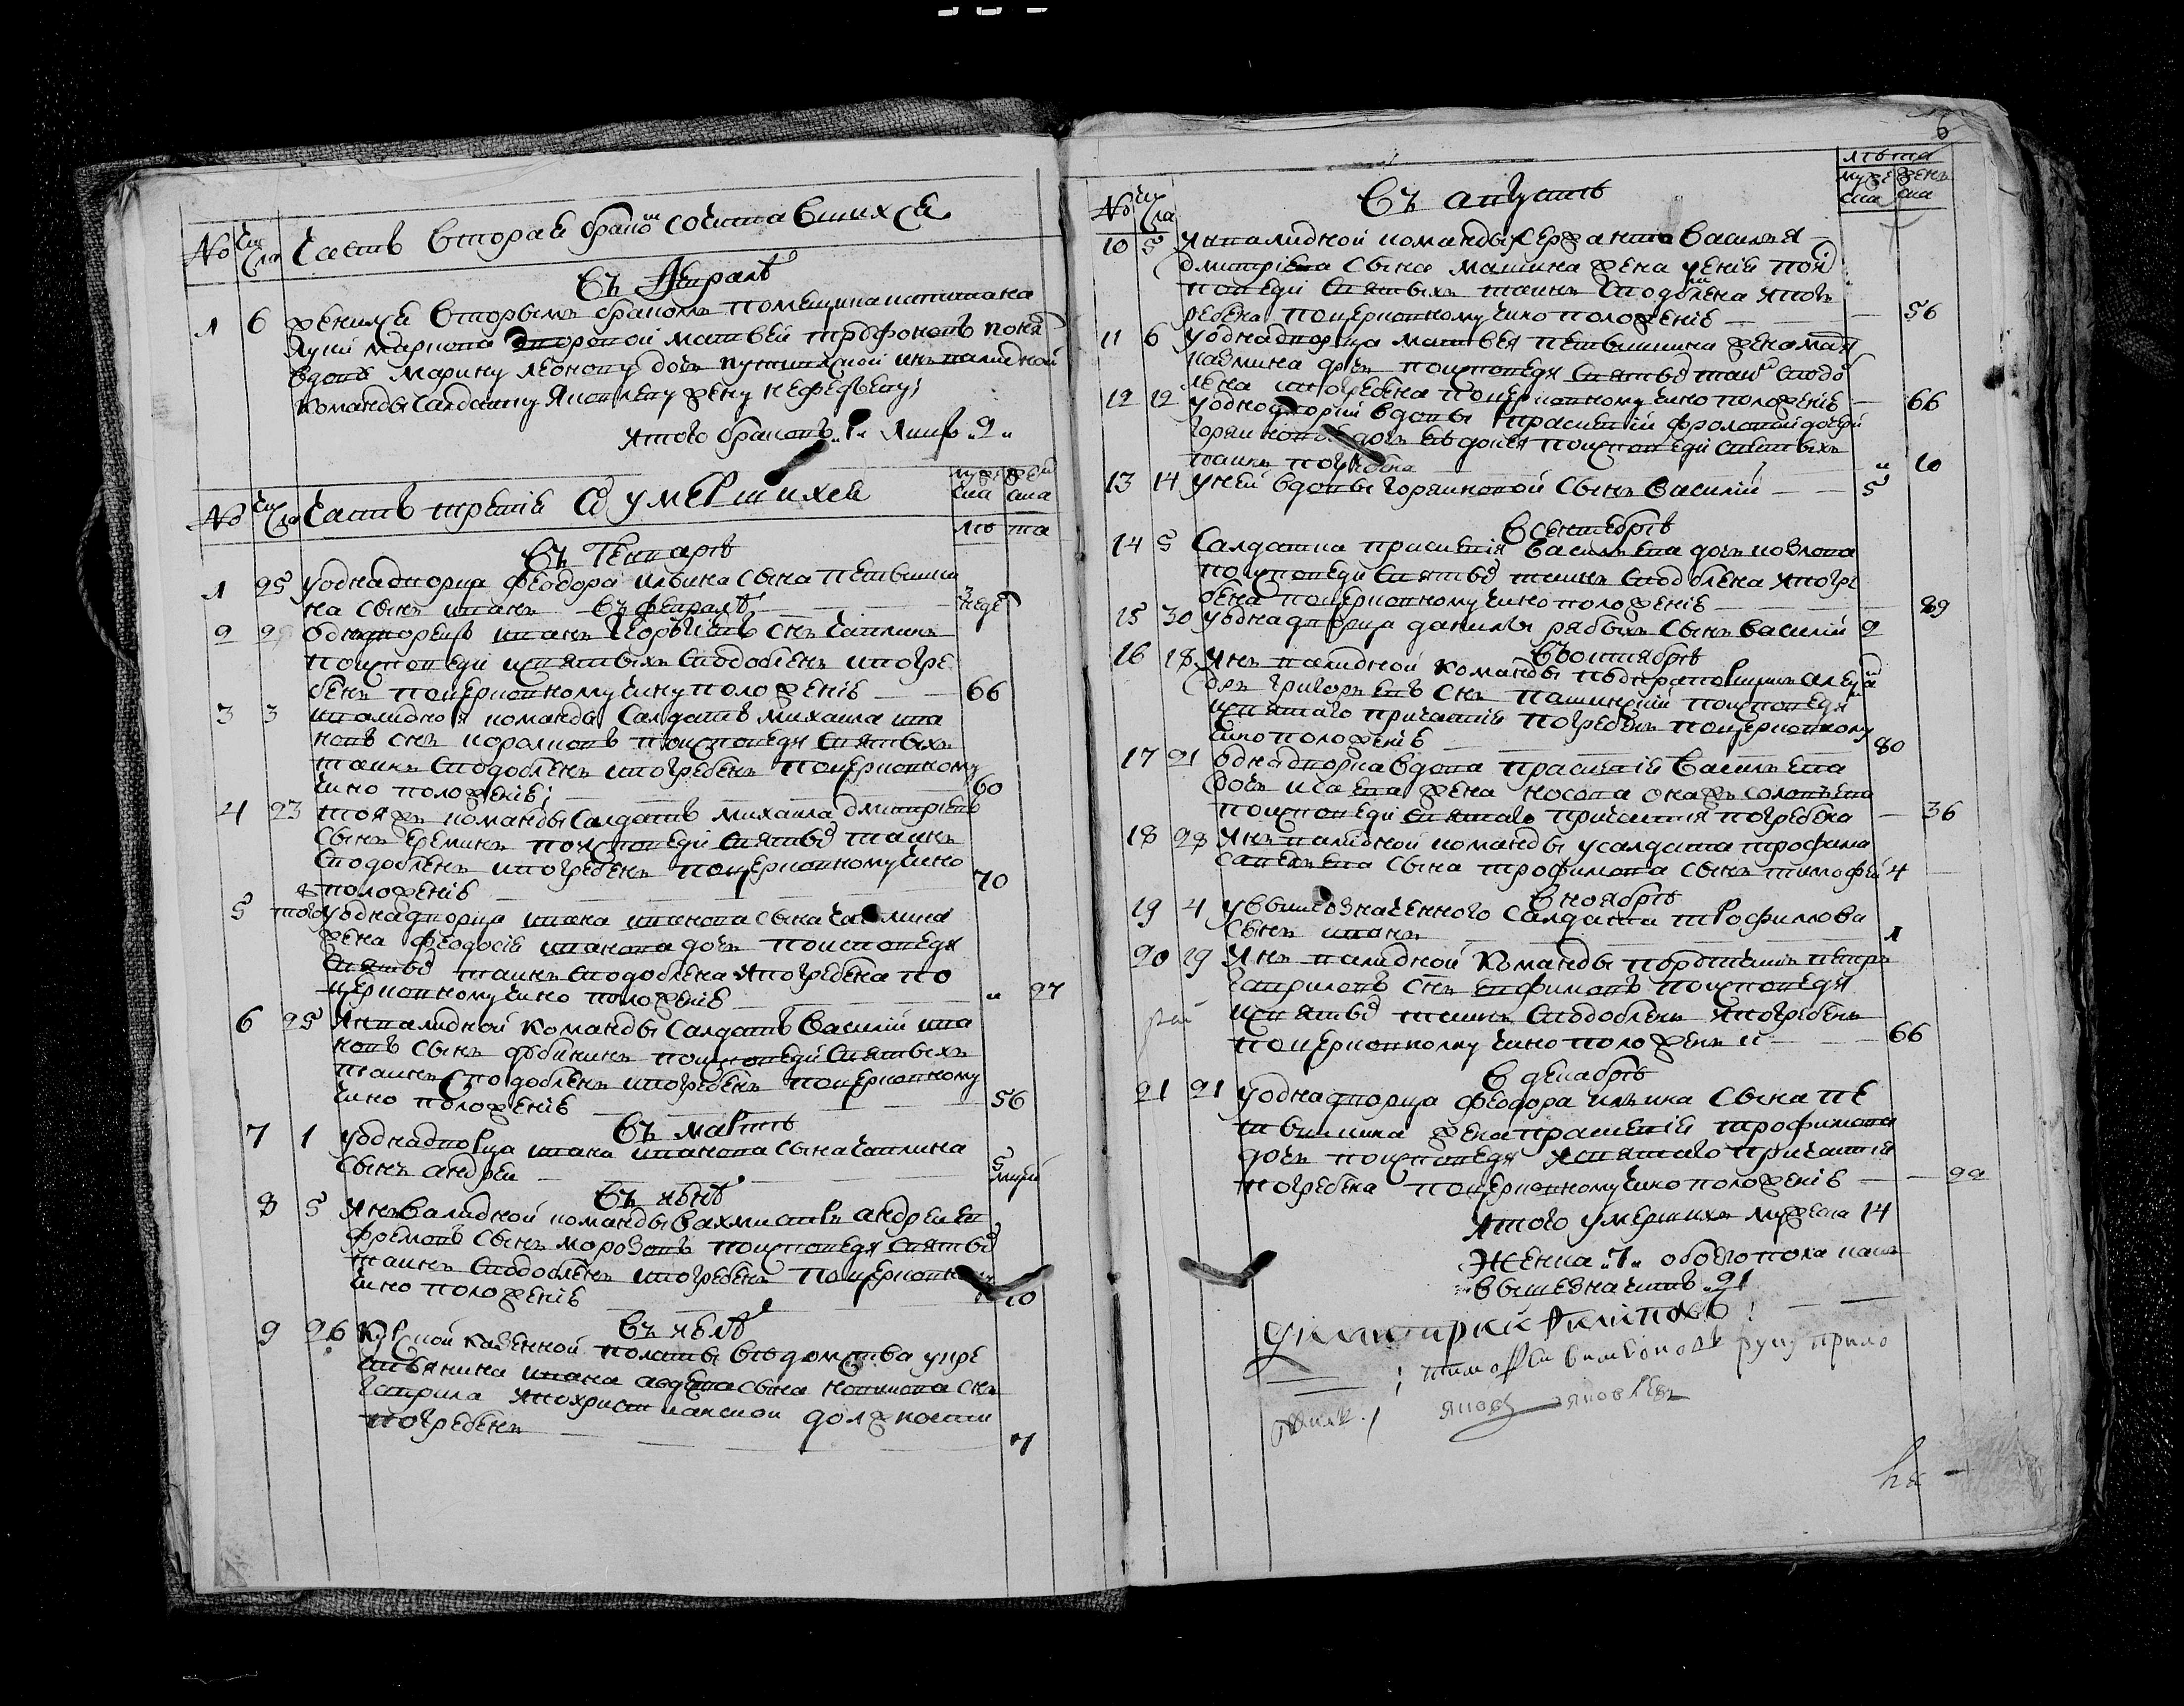 № Чи сла Часть вторая о бракомъ сочетавшихся
въ Генварѣ
1 6 женился вторымъ бракомъ помещика ивана
Луки Маркова дворовой Матвей Трофоновъ понявъ
вдову Марину Леонову дочь Путивлской инвалидной
команды салдатку Яковлеву жену Нефедьеву;
Итого браковъ „1„ Лицъ „2„
№ Чи сла Часть третія о умершихъ
муже ска жен ска
лѣ та
въ Генварѣ
1 25 у однадворца Феодора Ильина сына Петвиши
на сынъ иванъ 3 неде
въ февралѣ
2 2 однадворецъ иванъ Георгіевъ снъ Чаплинъ
по исповеди и святыхъ сподобленъ и погре
бенъ по церковному чину положеніе 66
3 3 инвалидной команды салдатъ Михаила ива
новъ снъ Королковъ по исповеди святыхъ
таинъ сподобленъ и погребенъ по церковному
чино положеніе; 60
4 23 тояжъ команды салдатъ Михаила Дмитріевъ
сынъ Ереминъ по исповеди святыхъ таинъ
сподобленъ и погребенъ по церковному чино
положеніе 70
5 того у однадворца ивана иванова сына Чаплина
жена Феодосія иванова дочь по исповеди
святыхъ таинъ сподоблена и погребена по
церковному чино положеніе „ 27
6 25 Инвалидной команды салдатъ Василий ива
новъ сынъ Фбининъ по исповеди святыхъ
таинъ сподобленъ и погребенъ по церковному
чино положеніе 56
въ мартѣ
7 1 у однадворца ивана иванова сына Чаплина
сынъ андреи 5 мцей
въ июнѣ
8 5 Инвалидной команды вахмистръ андреи Е
фремовъ сынъ Морозовъ по исповеди святыхъ
таинъ сподобленъ и погребенъ по церковно
чино положеніе
въ июлѣ
9 26 Курской казенной полаты вѣдомства у кре
стьянина ивана авдеева сына Ноздикова снъ
Гаврила по христианской должности
погребенъ 7
6
№ Чи сла въ августѣ
лѣта
муже ска женъ ска
10 5 Инвалидной команды Сержанта Василья
Дмитріева сына Машина жена Ксенія по
исповеди святыхъ таинъ сподоблена и пог
ребена по церковному чино положеніе — 56
11 6 у однадворца Матвея Петвишина жена Марія
Казмина дочь по исповеди святыхъ таинъ сподо
блена и погребена по церковному чино положеніе — 66
12 12 у однодворки вдовы Прасковіи Фроловой дочери
Горяиновой дочь Евдокія по исповеди святыхъ
таинъ погребена „ 10
13 14 у ней вдовы Горяиновой сынъ Василій 5
в сентебрѣ
14 5 Салдатка Прасковія Васильева дочь Козлова
по исповеди святыхъ таинъ сподоблена и погре
бена по церковному чино положеніе 89
15 30 у однадворца Данилы Рябыхъ сынъ Василій 2
въ октябрѣ
16 18 Инвалидной команды подпрапорщикъ алексан
дръ Григорьевъ снъ Пашинскій по исповеди
и святаго причастія погребенъ по церковному
чино положеніе 80
17 21 однадворка вдова Прасковія Васильева
дочь Исаева жена Носова онажъ Соловьева
по исповеди святаго причастия погребена — 36
18 28 Инвалидной команды у салдата Трофима
Савельева сына Трофимова сынъ Тимофей 4
в ноябрѣ
19 4 у вышеозначенного салдата Трофимова
сынъ иванъ 1
20 29 Инвалидной команды порутчикъ Петръ
Гавриловъ снъ Ефимовъ по исповеди
и святыхъ таинъ сподобленъ и погребенъ
по церковному чино положени 66
в декабрѣ
21 21 у однадворца Феодора Ильина сына Пе
твишина жена Прасковія Трофимова
дочь по исповеди и святаго причастія
погребена по церковному чино положеніе — 22
Итого умершихъ мужеска 14
Женска „7„ обоего пола какъ
выше значитъ „21
Димитрий
Тимофеи руку прило
Яковъ Яковлевъ